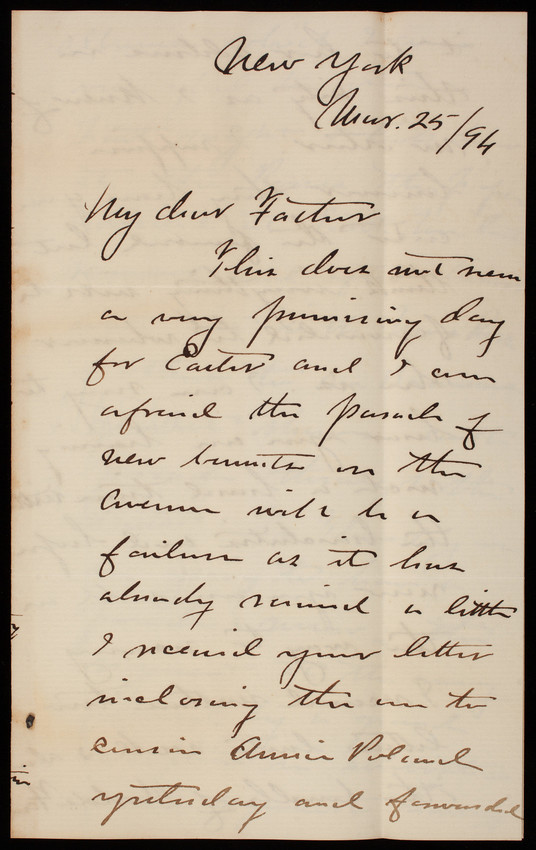 New York
Mar. 25/94
My dear Father
This does not seem
a very promising day
for Easter and I am
afraid the parade of
new bonnets on the
avenue will be a
failure as it has
already rained a little
I received your letter
inclosing the one to
cousin Annie Poland
yesterday and forwarded